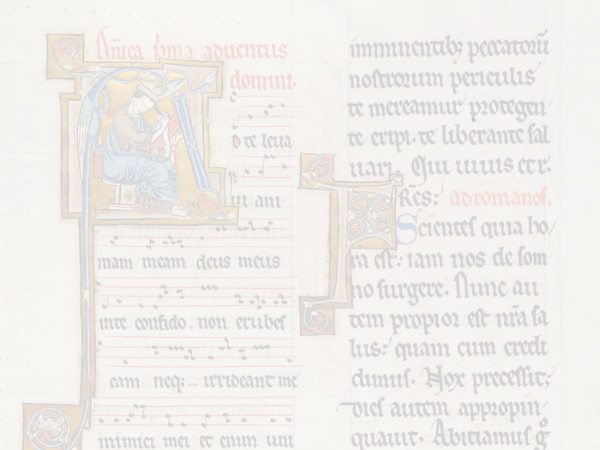 Dñica prima aduentus
domini.
D te leua
ui ani
mam meam deus meus
inte confido non erubes
cam neq; irrideant me
inimici mei et enim uni
imminentibꝫ peccatorū
nostrorum periculis
te mereamur protegen
te eripi. te liberante sal
uari. Qui uiuis et r.
Fr̄es: ad romanos.
Scientes quia ho
ra est: iam nos de som
no surgere. Nunc au
tem propior est nr̄a sa
lus: quam cum credi
dimus. Nox precessit;
dies autem appropin
quauit. Abiciamus g̊